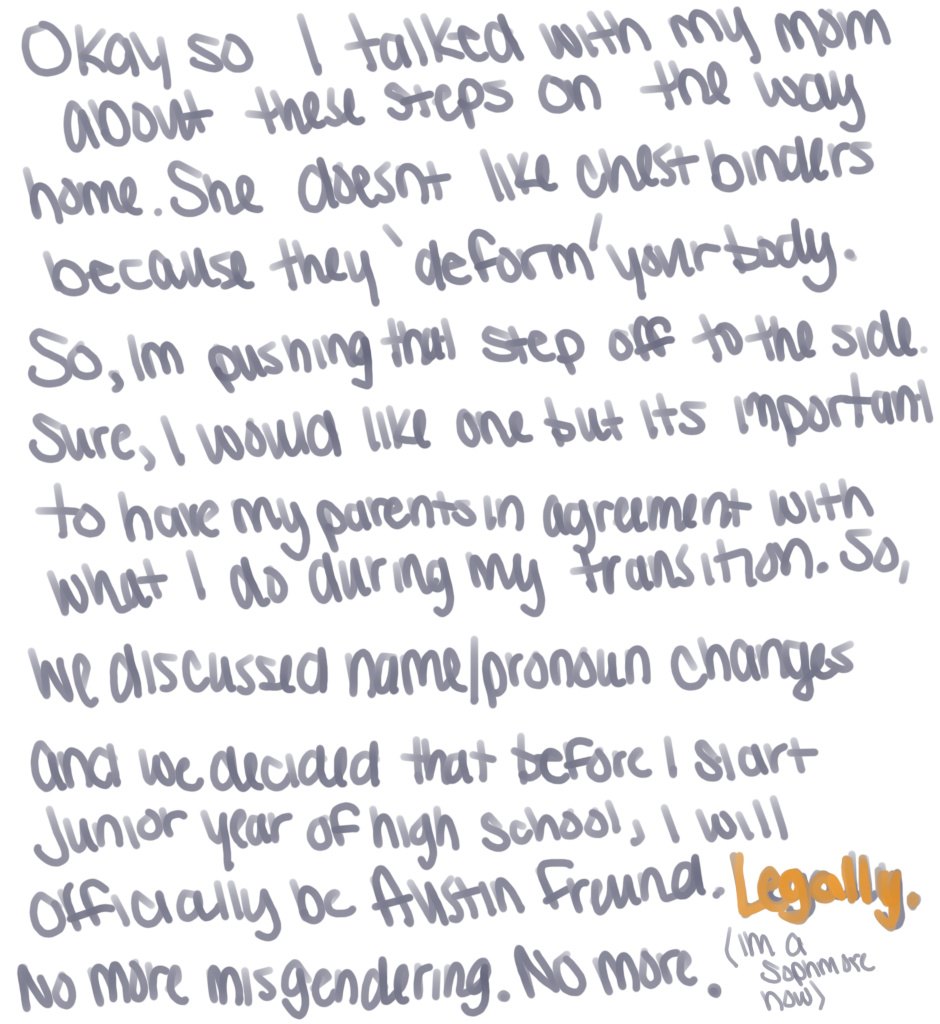 Okay so I talked with my mom
about these steps on the way
home. She doesnt like chest binders
because they 'deform' your body.
So, Im pushing that step off to the side.
Sure, I would like one but its important
to have my parents in agreement with
what I do during my transition. So,
we discussed name/pronoun changes
and we decided that before I start
Junior year of high school, I will
officially be Austin Freund. Legally.
No more misgendering. No more.
(Im a
Sophmore
now)